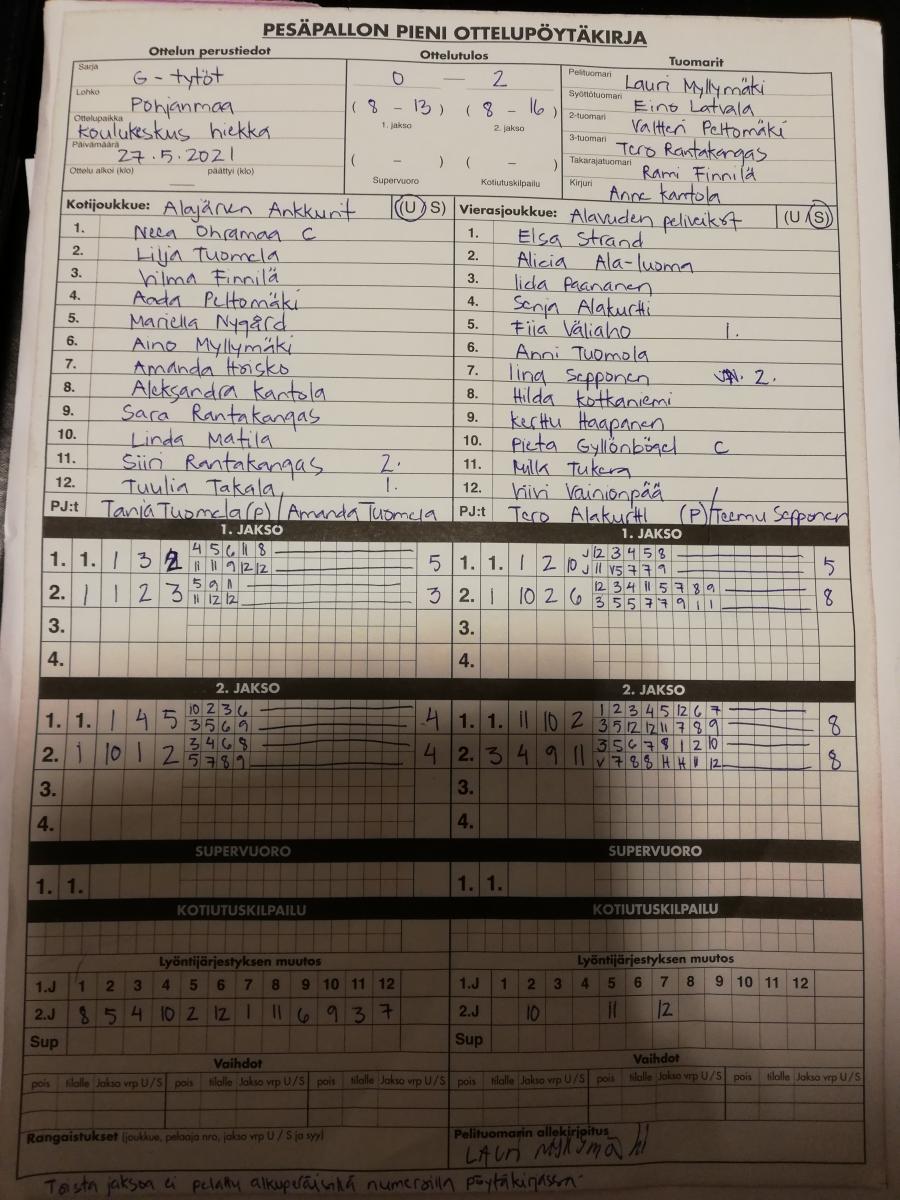 PESÄPALLON PIENI OTTELUPÖYTÄKIRJA
Ottelun perustiedot
Sarja G-tytöt
Lohko Pohjanmaa
Ottelupaikka Koulukeskus hiekka
Päivämäärä 27.5.2021
Ottelu alkoi (klo) — päättyi (klo)
Ottelutulos
0 — 2
( 8 - 13 ) ( 8 - 16 )
1. jakso 2. jakso
( - ) ( - )
Supervuoro Kotiutuskilpailu
Tuomarit
Pelituomari Lauri Myllymäki
Syöttötuomari Eino Latvala
2-tuomari Valtteri Peltomäki
3-tuomari Tero Rantakangas
Takarajatuomari Rami Finnilä
Kirjuri Anne Kantola
Kotijoukkue: Alajärven Ankkurit (U S)
1. Neea Ohramaa C
2. Lilja Tuomela
3. Vilma Finnilä
4. Aada Peltomäki
5. Mariella Nygård
6. Aino Myllymäki
7. Amanda Hoisko
8. Aleksandra Kantola
9. Sara Rantakangas
10. Linda Matila
11. Siiri Rantakangas 2.
12. Tuulia Takala 1.
PJ:t Tanja Tuomela (P) / Amanda Tuomela
Vierasjoukkue: Alavuden peliveikot (U S)
1. Elsa Strand
2. Alicia Ala-luoma
3. Iida Paananen
4. Senja Alakurtti
5. Fiia Väliaho 1.
6. Anni Tuomola
7. Iina Sepponen 2.
8. Hilda Kotkaniemi
9. Kerttu Haapanen
10. Pieta Gyllönbögel C
11. Milla Tukeva
12. Viivi Vainionpää
PJ:t Tero Alakurtti (P) / Teemu Sepponen
1. JAKSO
1. 1. 1 3 2 4 5 6 11 8 5
11 11 9 12 12
2. 1 1 2 3 5 9 11 3
11 12 12
3.
4.
1. JAKSO
1. 1. 1 2 10 J 12 3 4 5 8 5
J 11 V5 7 7 9
2. 1 10 2 6 12 3 4 11 5 7 8 9 8
3 5 5 7 7 9 1 1
3.
4.
2. JAKSO
1. 1. 1 4 5 10 2 3 6 4
3 5 6 9
2. 1 10 1 2 3 4 6 8 4
5 7 8 9
3.
4.
2. JAKSO
1. 1. 11 10 2 1 2 3 4 5 12 6 7 8
3 5 12 12 11 7 8 9
2. 3 4 9 11 3 5 6 7 8 1 2 10 8
V 7 8 8 H H 11 12
3.
4.
SUPERVUORO
1. 1.
SUPERVUORO
1. 1.
KOTIUTUSKILPAILU
KOTIUTUSKILPAILU
Lyöntijärjestyksen muutos
1.J 1 2 3 4 5 6 7 8 9 10 11 12
2.J 8 5 4 10 2 12 1 11 6 9 3 7
Sup
Lyöntijärjestyksen muutos
1.J 1 2 3 4 5 6 7 8 9 10 11 12
2.J 10 11 12
Sup
Vaihdot
pois tilalle Jakso vrp U/S pois tilalle Jakso vrp U/S pois tilalle Jakso vrp U/S
Vaihdot
pois tilalle Jakso vrp U/S pois tilalle Jakso vrp U/S pois tilalle Jakso vrp U/S
Rangaistukset (joukkue, pelaaja nro, jakso vrp U / S ja syy)
Pelituomarin allekirjoitus
LAURI MYLLYMÄKI
Toista jaksoa ei pelattu alkuperäisillä numeroilla pöytäkirjassa.